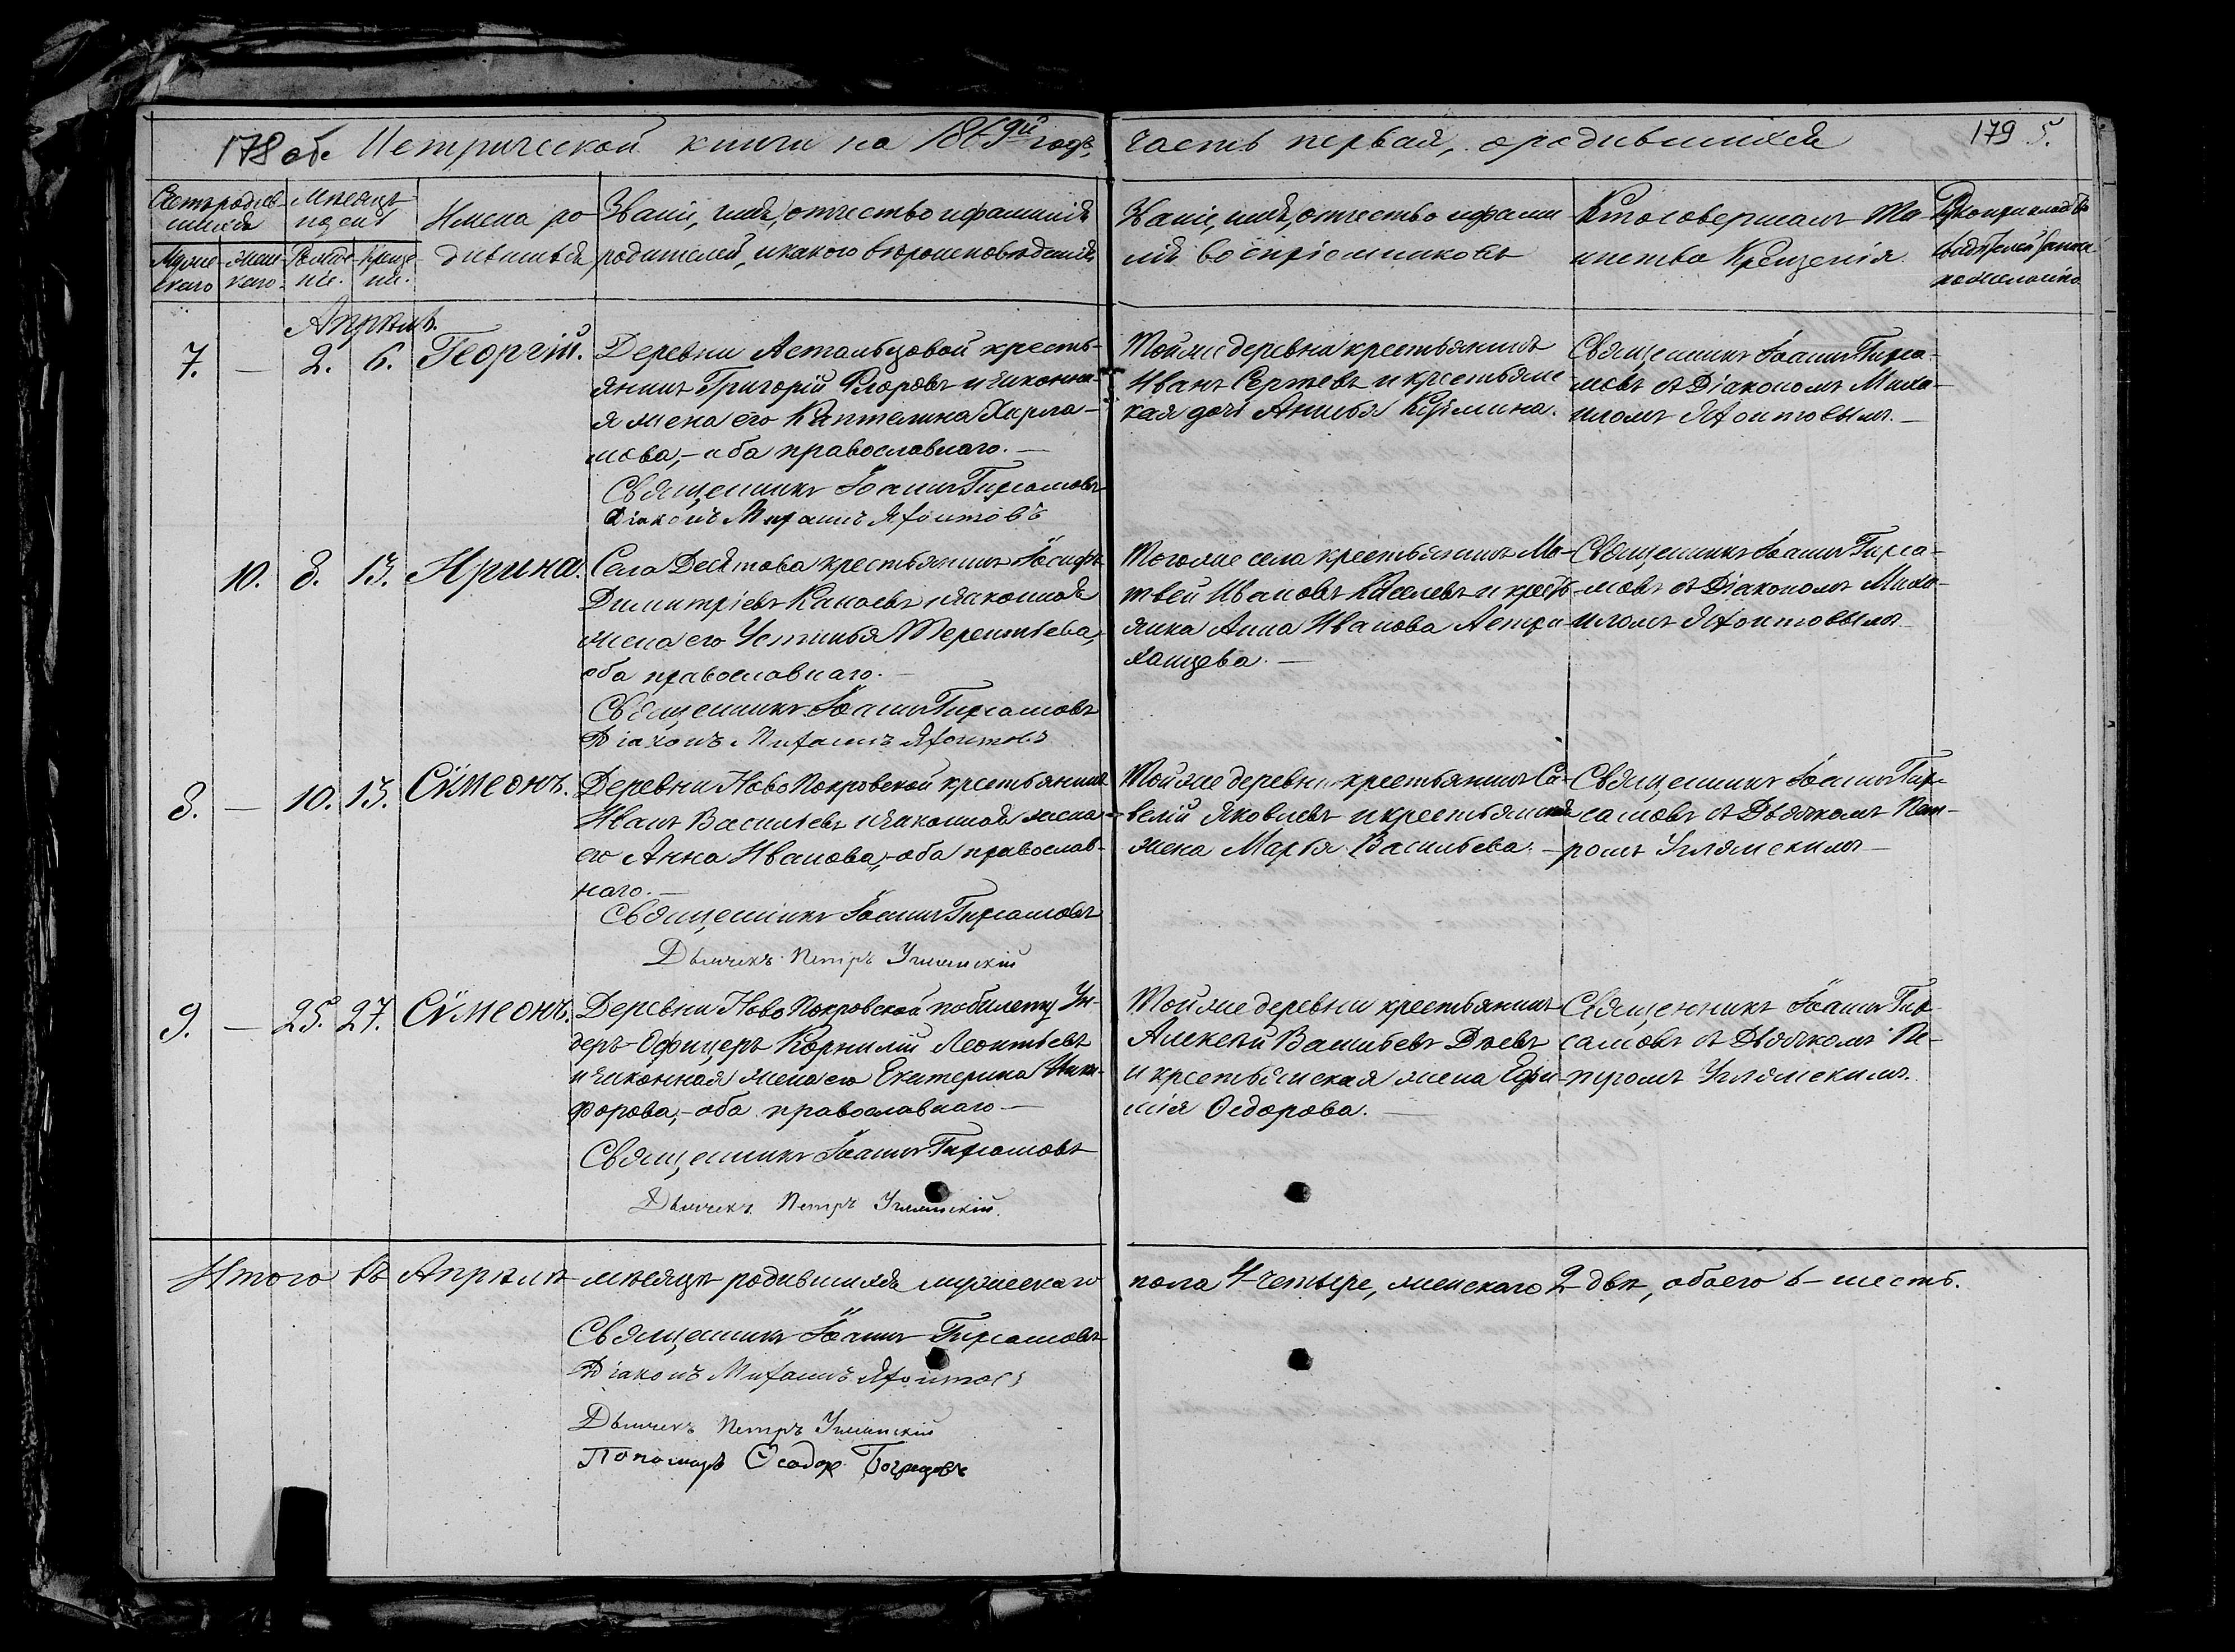 178 об. Метрической книги на 1869й годъ, часть первая, о родившихся 179 5.
Счетъ родив-
шихся
Муже-
скаго
Жен-
скаго.
Мѣсяцъ
и день
Рожде-
нія.
Креще-
нія.
Имена ро-
дившихся
Званіе, имя, отчество и фамилія
родителей, и какого вѣроисповѣданія
Званіе, имя, отчество и фами-
лія воспріемниковъ
Кто совершалъ Та-
инство Крещенія
Рукоприкладство
свидѣтелей записи
по желанію.
Апрѣль.
7. — 2. 6. Георгій.
Деревни крестья-
янинъ Григорій Флоровъ и законна-
я жена его Каптелина Харла-
мова,- оба православнаго. —
Священникъ Іоаннъ Гирсамовъ
Діаконъ Михаилъ Яхонтовъ
Той же деревни крестьянинъ
Иванъ Сергѣевъ и крестьянс-
кая дочь Анисья Кузмина.
Священникъ Іоаннъ Гирса-
мовъ съ Діакономъ Миха-
иломъ Яхонтовымъ. —
10. 8. 13. Ирина.
Села Десятова крестьянинъ Іосифъ
Димитріевъ Канаевъ и законная
жена его Устинья Терентьева,
оба православнаго. —
Священникъ Іоаннъ Гирсамовъ
Діаконъ Михаилъ Яхонтовъ
Того же села крестьянинъ Ма-
твей Ивановъ Киселевъ и кресть-
янка Анна Иванова Астра-
ханцева. —
Священникъ Іоаннъ Гирса-
мовъ съ Діакономъ Миха-
иломъ Яхонтовымъ
8. — 10. 13. Сѵмеонъ.
Деревни Ново Покровской крестьянинъ
Иванъ Васильевъ и законная жена
его Анна Иванова,- оба православ-
наго. —
Священникъ Іоаннъ Гирсамовъ
Дьячекъ Петръ Углянскій
Той же деревни крестьянинъ Са-
велій Яковлевъ и крестьянская
жена Марѳа Васильева. —
Священникъ Іоаннъ Гир-
самовъ съ Дьячкомъ Пет-
ромъ Углянскимъ —
9. — 25. 27. Сѵмеонъ.
Деревни Ново Покровской по билету Ун-
деръ-Офицеръ Корнилій Леонтьевъ
и законная жена его Екатерина Ники-
форова,- оба православнаго —
Священникъ Іоаннъ Гирсамовъ
Дьячекъ Петръ Углянскій.
Той же деревни крестьянинъ
Алексѣй Васильевъ Дѣевъ
и крестьянская жена Ефи-
мія Ѳедорова. —
Священникъ Іоаннъ Гир-
самовъ съ Дьячкомъ Пе-
тромъ Углянскимъ.
Итого въ Апрѣлѣ мѣсяцѣ родившихся мужескаго пола 4 четыре, женскаго 2 двѣ, обоего 6 — шесть.
Священникъ Іоаннъ Гирсамовъ
Діаконъ Михаилъ Яхонтовъ
Дьячекъ Петръ Углянскій
Пономарь Ѳеодоръ